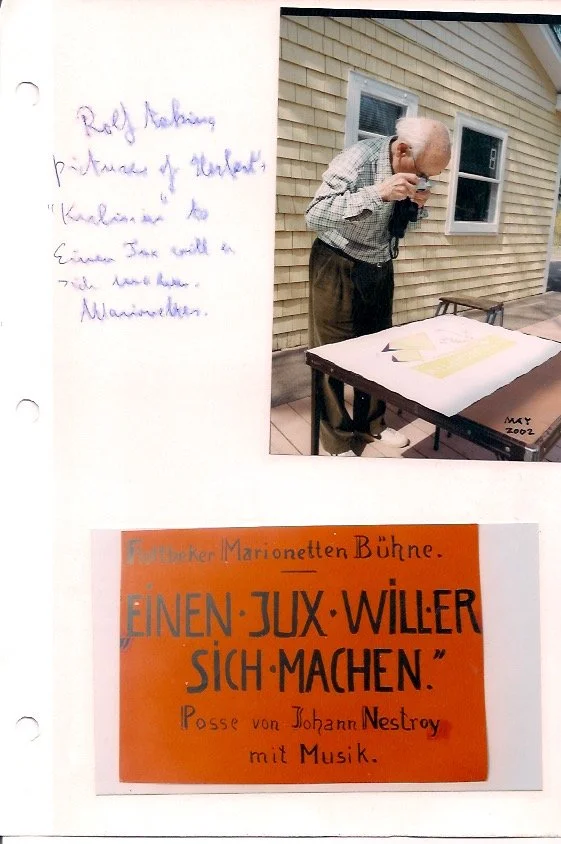 Rolf taking
pictures of Herbert's
"Kulissen" to
Einen Jux will er
sich machen.
Marionetten.
MAY
2002
Flottbeker Marionetten Bühne.
„EINEN·JUX·WILL·ER
SICH·MACHEN.”
Posse von Johann Nestroy
mit Musik.